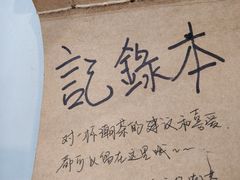 記錄本
对一杯潮茶的建议和喜爱
都可以留在这里哦~~